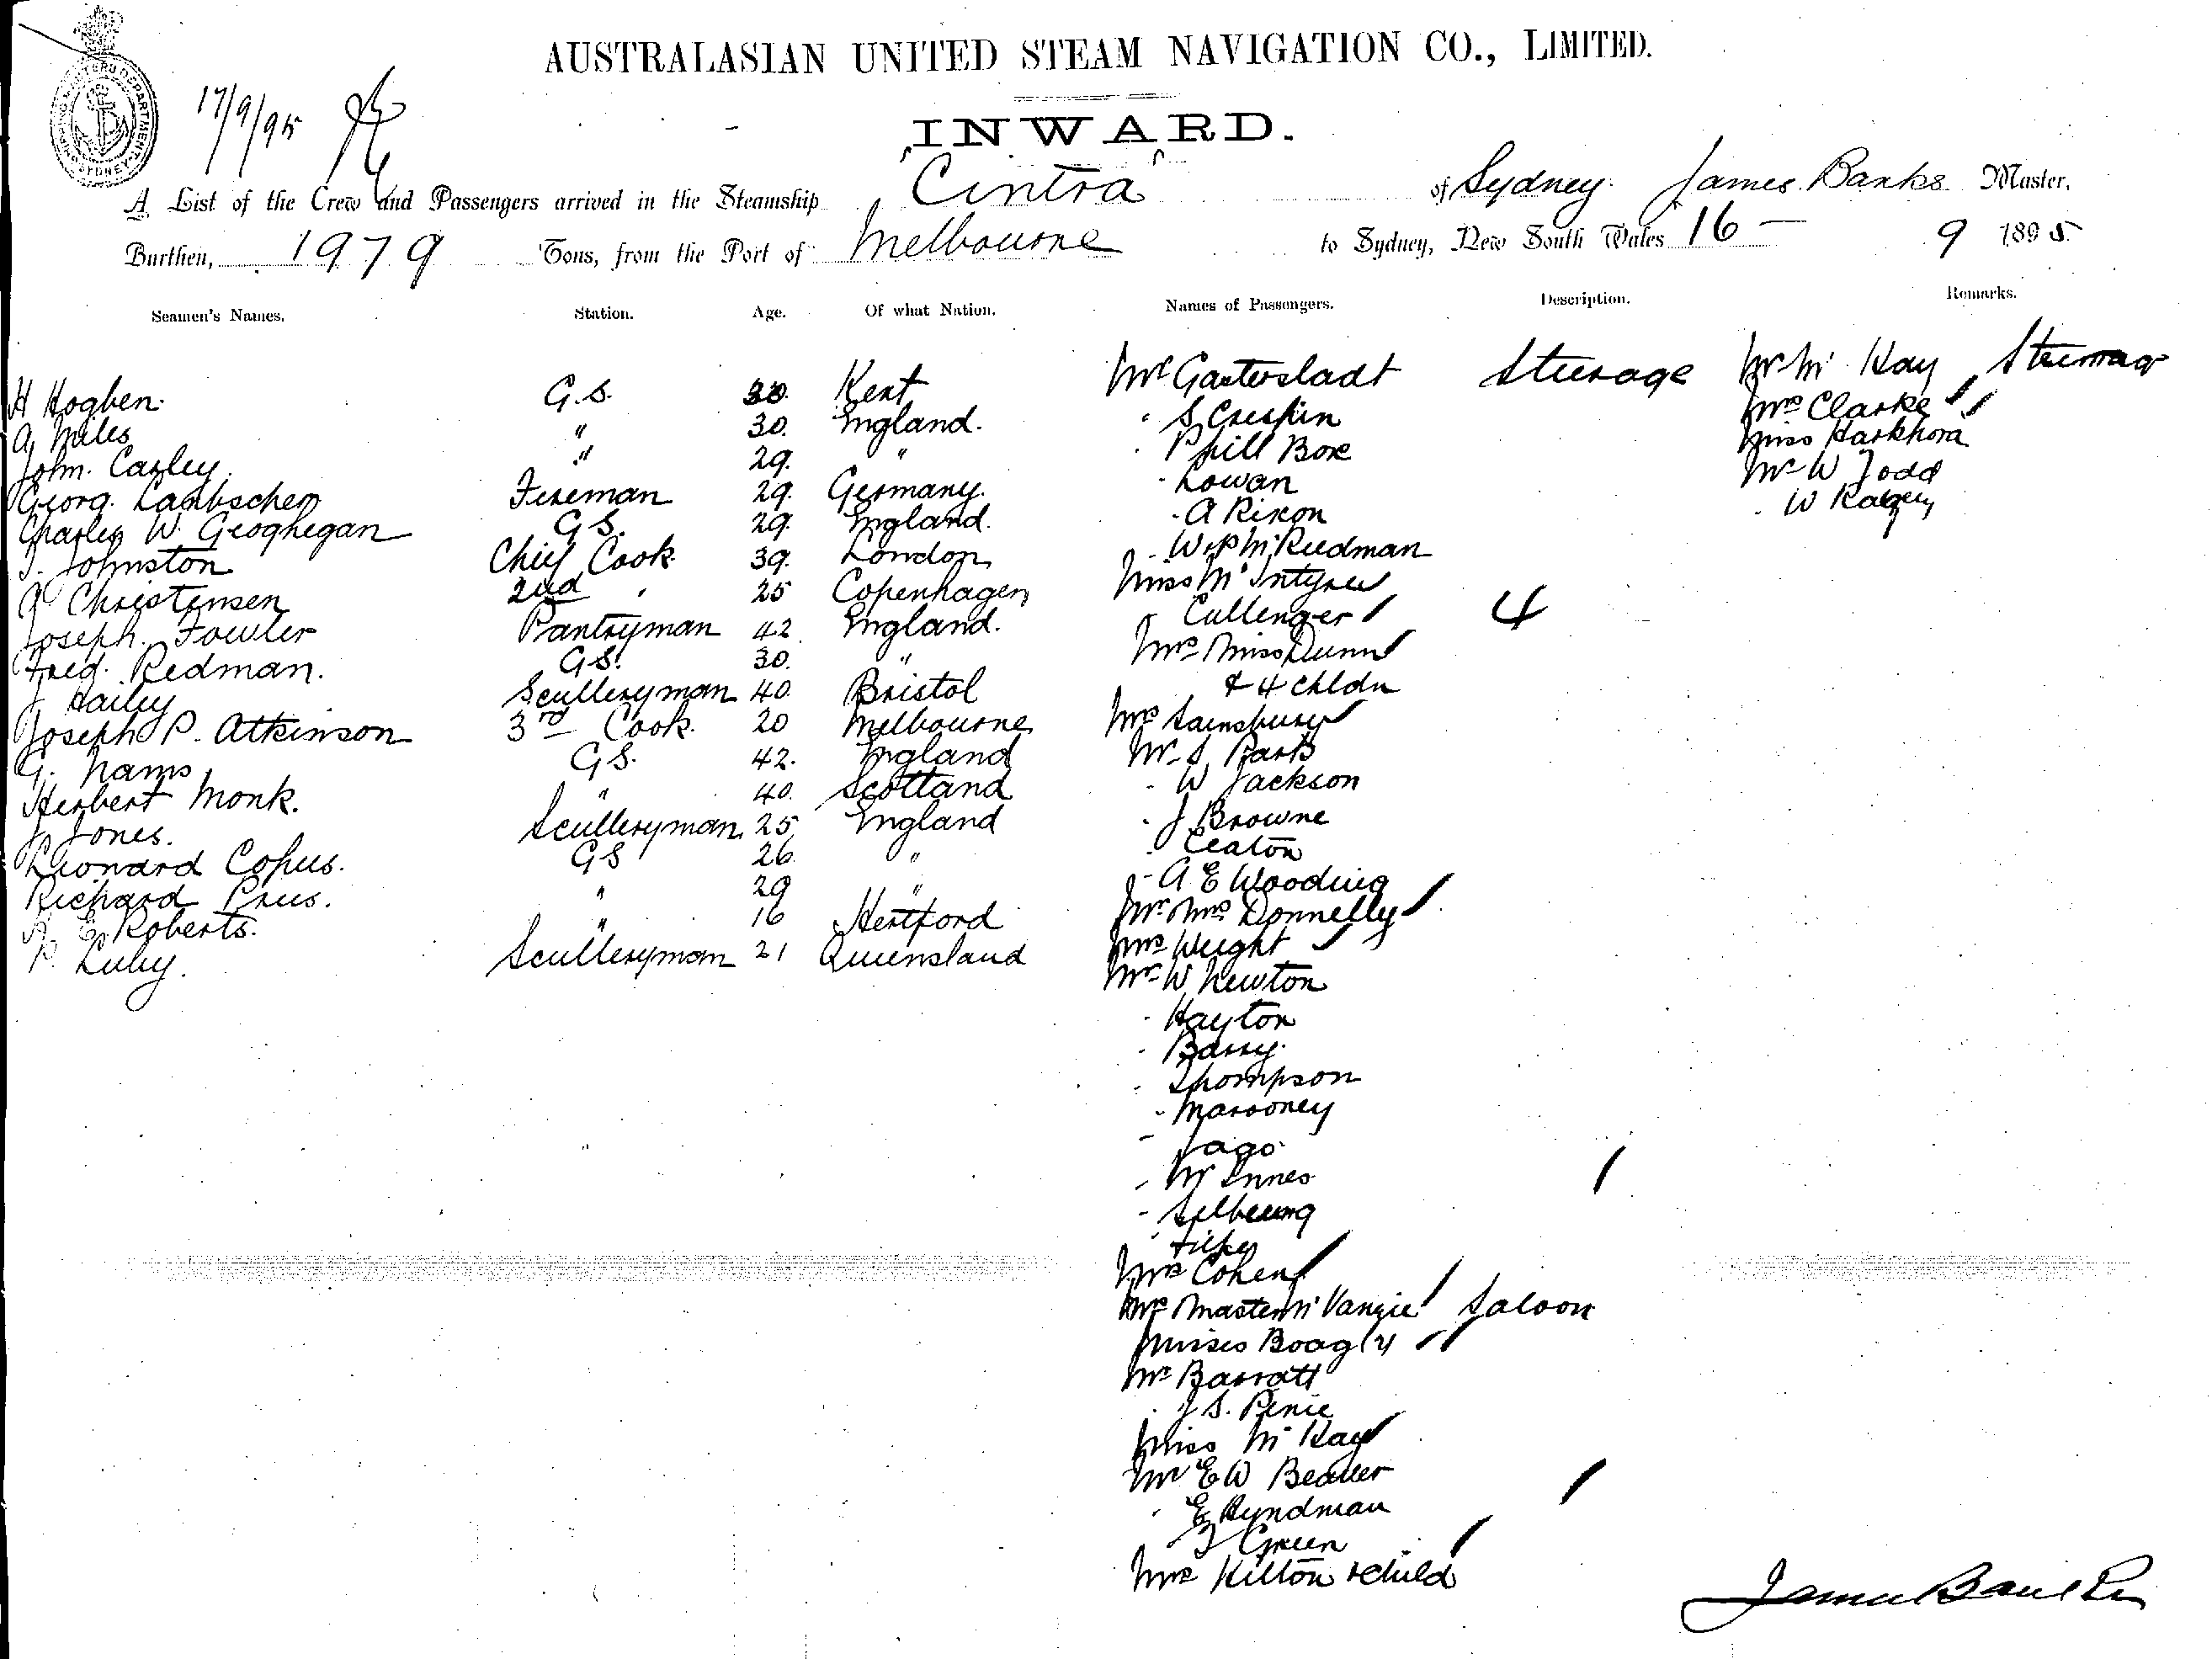 AUSTRALASIAN UNITED STEAM NAVIGATION CO., LIMITED.
17/9/95
INWARD.
A List of the Crew and Passengers arrived in the Steamship "Cintra" of Sydney James Banks Master,
Burthen, 1979 Tons, from the Port of Melbourne to Sydney, New South Wales 16 - 9 1895
Seamen's Names. Station. Age. Of what Nation. Names of Passengers. Description. Remarks.
H Hogben G.S. 30. Kent
A Miles " 30. England.
John. Casley. " 29. "
Georg. Fireman 29. Germany.
Charles W. Geoghegan G.S. 29. England.
Johnston Chief Cook 39. London
Christensen 2nd " 25 Copenhagen
Joseph. Fowler Pantryman 42 England.
Fred. Redman. G.S. 30. "
J Hailey Sculleryman 40. Bristol
Joseph P. Atkinson 3rd Cook. 20 Melbourne
G. Nams G.S. 42. England
Herbert Monk. " 40. Scotland
J Jones. Sculleryman 25 England
Leonard Copus. G.S 26 "
Richard " 29 "
E. Roberts. " 16 Hertford
P. Luby. Sculleryman 21 Queensland
Mr Steerage
" S Crespin
" Phill Box
" Cowan
" A Rixon
" Redman
Miss McIntyre
" Cullenger 4
Mrs Miss Dunn
& 4 chldn
Mrs Sainsbury
Mr S Park
" W Jackson
" J Browne
" Ceaton
" A E Wooding
Mr Mrs Donnelly
Mrs Weight
Mr W Newton
" Hayton
" Barry
" Thompson
" Marooney
" Jago
" McInnes
Mrs Cohen
Mrs Master Saloon
Misses Boag (2)
Mr Barratt
" J S. Penie
Miss McKay
Mr E W Beaver
" E Hyndman
" Green
Mrs Hilton & child
Mr McKay Steerage
Mrs Clarke
Miss
Mr W Todd
" W
James Banks